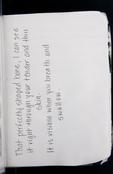 That perfectly shaped bone, I can see
it right through your tender and thin
skin.
It is visible when you breath and
swallow